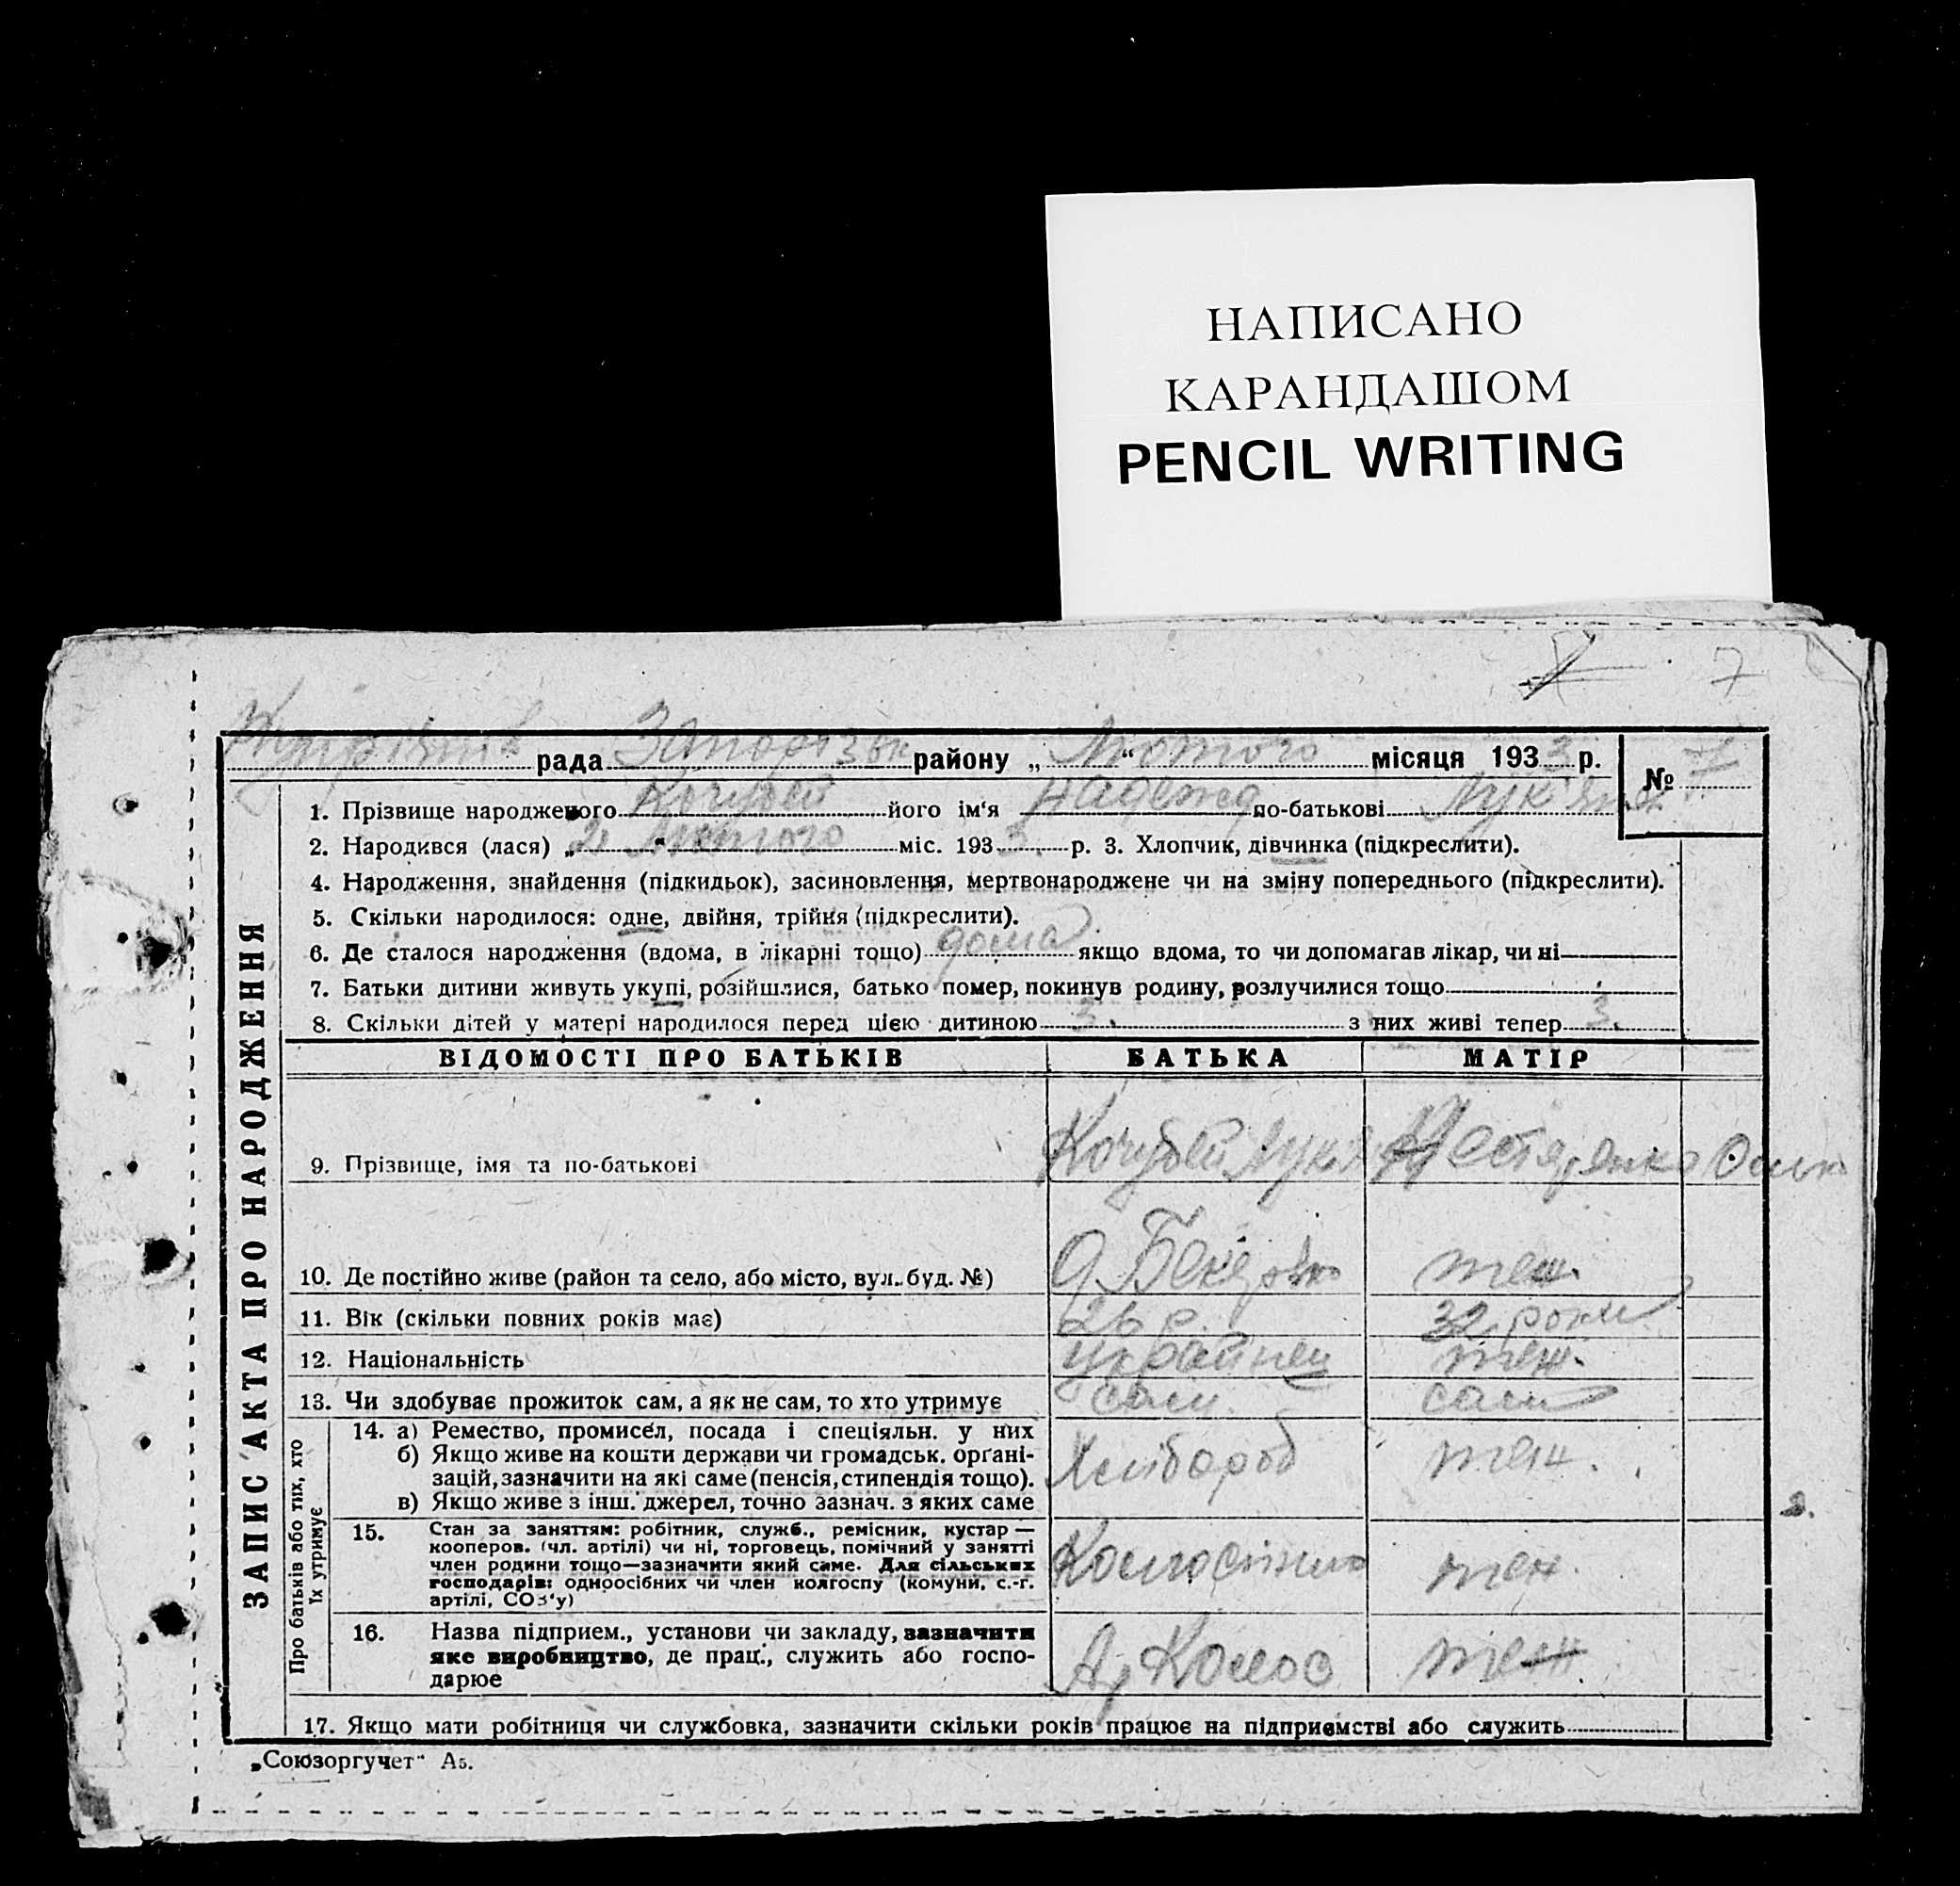 НАПИСАНО
КАРАНДАШОМ
PENCIL WRITING
7
рада Запорізьк району „ “ Лютого місяця 1933 р. № 7
1. Прізвище народженого Кочубей його ім‘я Надежд по-батькові Лук'ян
2. Народився (лася) „2“ Лютого міс. 1933. р. 3. Хлопчик, дівчинка (підкреслити).
4. Народження, знайдення (підкидьок), засиновлення, мертвонароджене чи на зміну попереднього (підкреслити).
5. Скільки народилося: одне, двійня, трійня (підкреслити).
6. Де сталося народження (вдома, в лікарні тощо) дома якщо вдома, то чи допомагав лікар, чи ні
7. Батьки дитини живуть укупі, розійшлися, батько помер, покинув родину, розлучилися тощо
8. Скільки дітей у матері народилося перед цією дитиною 3. з них живі тепер 3.
ЗАПИС АКТА ПРО НАРОДЖЕННЯ
ВІДОМОСТІ ПРО БАТЬКІВ БАТЬКА МАТІР
9. Прізвище, імя та по-батькові Кочубей Лук
10. Де постійно живе (район та село, або місто, вул. буд. №) теж.
11. Вік (скільки повних років має) 26 р. 32 роки
12. Національність українец теж.
13. Чи здобуває прожиток сам, а як не сам, то хто утримує сам. сам
Про батьків або тих, хто їх утримує
14. а) Ремество, промисел, посада і спеціяльн. у них
б) Якщо живе на кошти держави чи громадськ. органі-
зацій, зазначити на які саме (пенсія, стипендія тощо).
в) Якщо живе з інш. джерел, точно зазнач. з яких саме
Хлібороб теж.
15. Стан за заняттям: робітник, служб., ремісник, кустар —
кооперов. (чл. артілі) чи ні, торговець, помічний у занятті
член родини тощо—зазначити який саме. Для сільських
господарів: одноосібних чи член колгоспу (комуни, с.-г.
артілі, СОЗ‘у)
теж.
16. Назва підприєм., установи чи закладу, зазначити
яке виробництво, де прац., служить або госпо-
дарює
Колос теж.
17. Якщо мати робітниця чи службовка, зазначити скільки років працює на підприємстві або служить
„Союзоргучет“ А5.